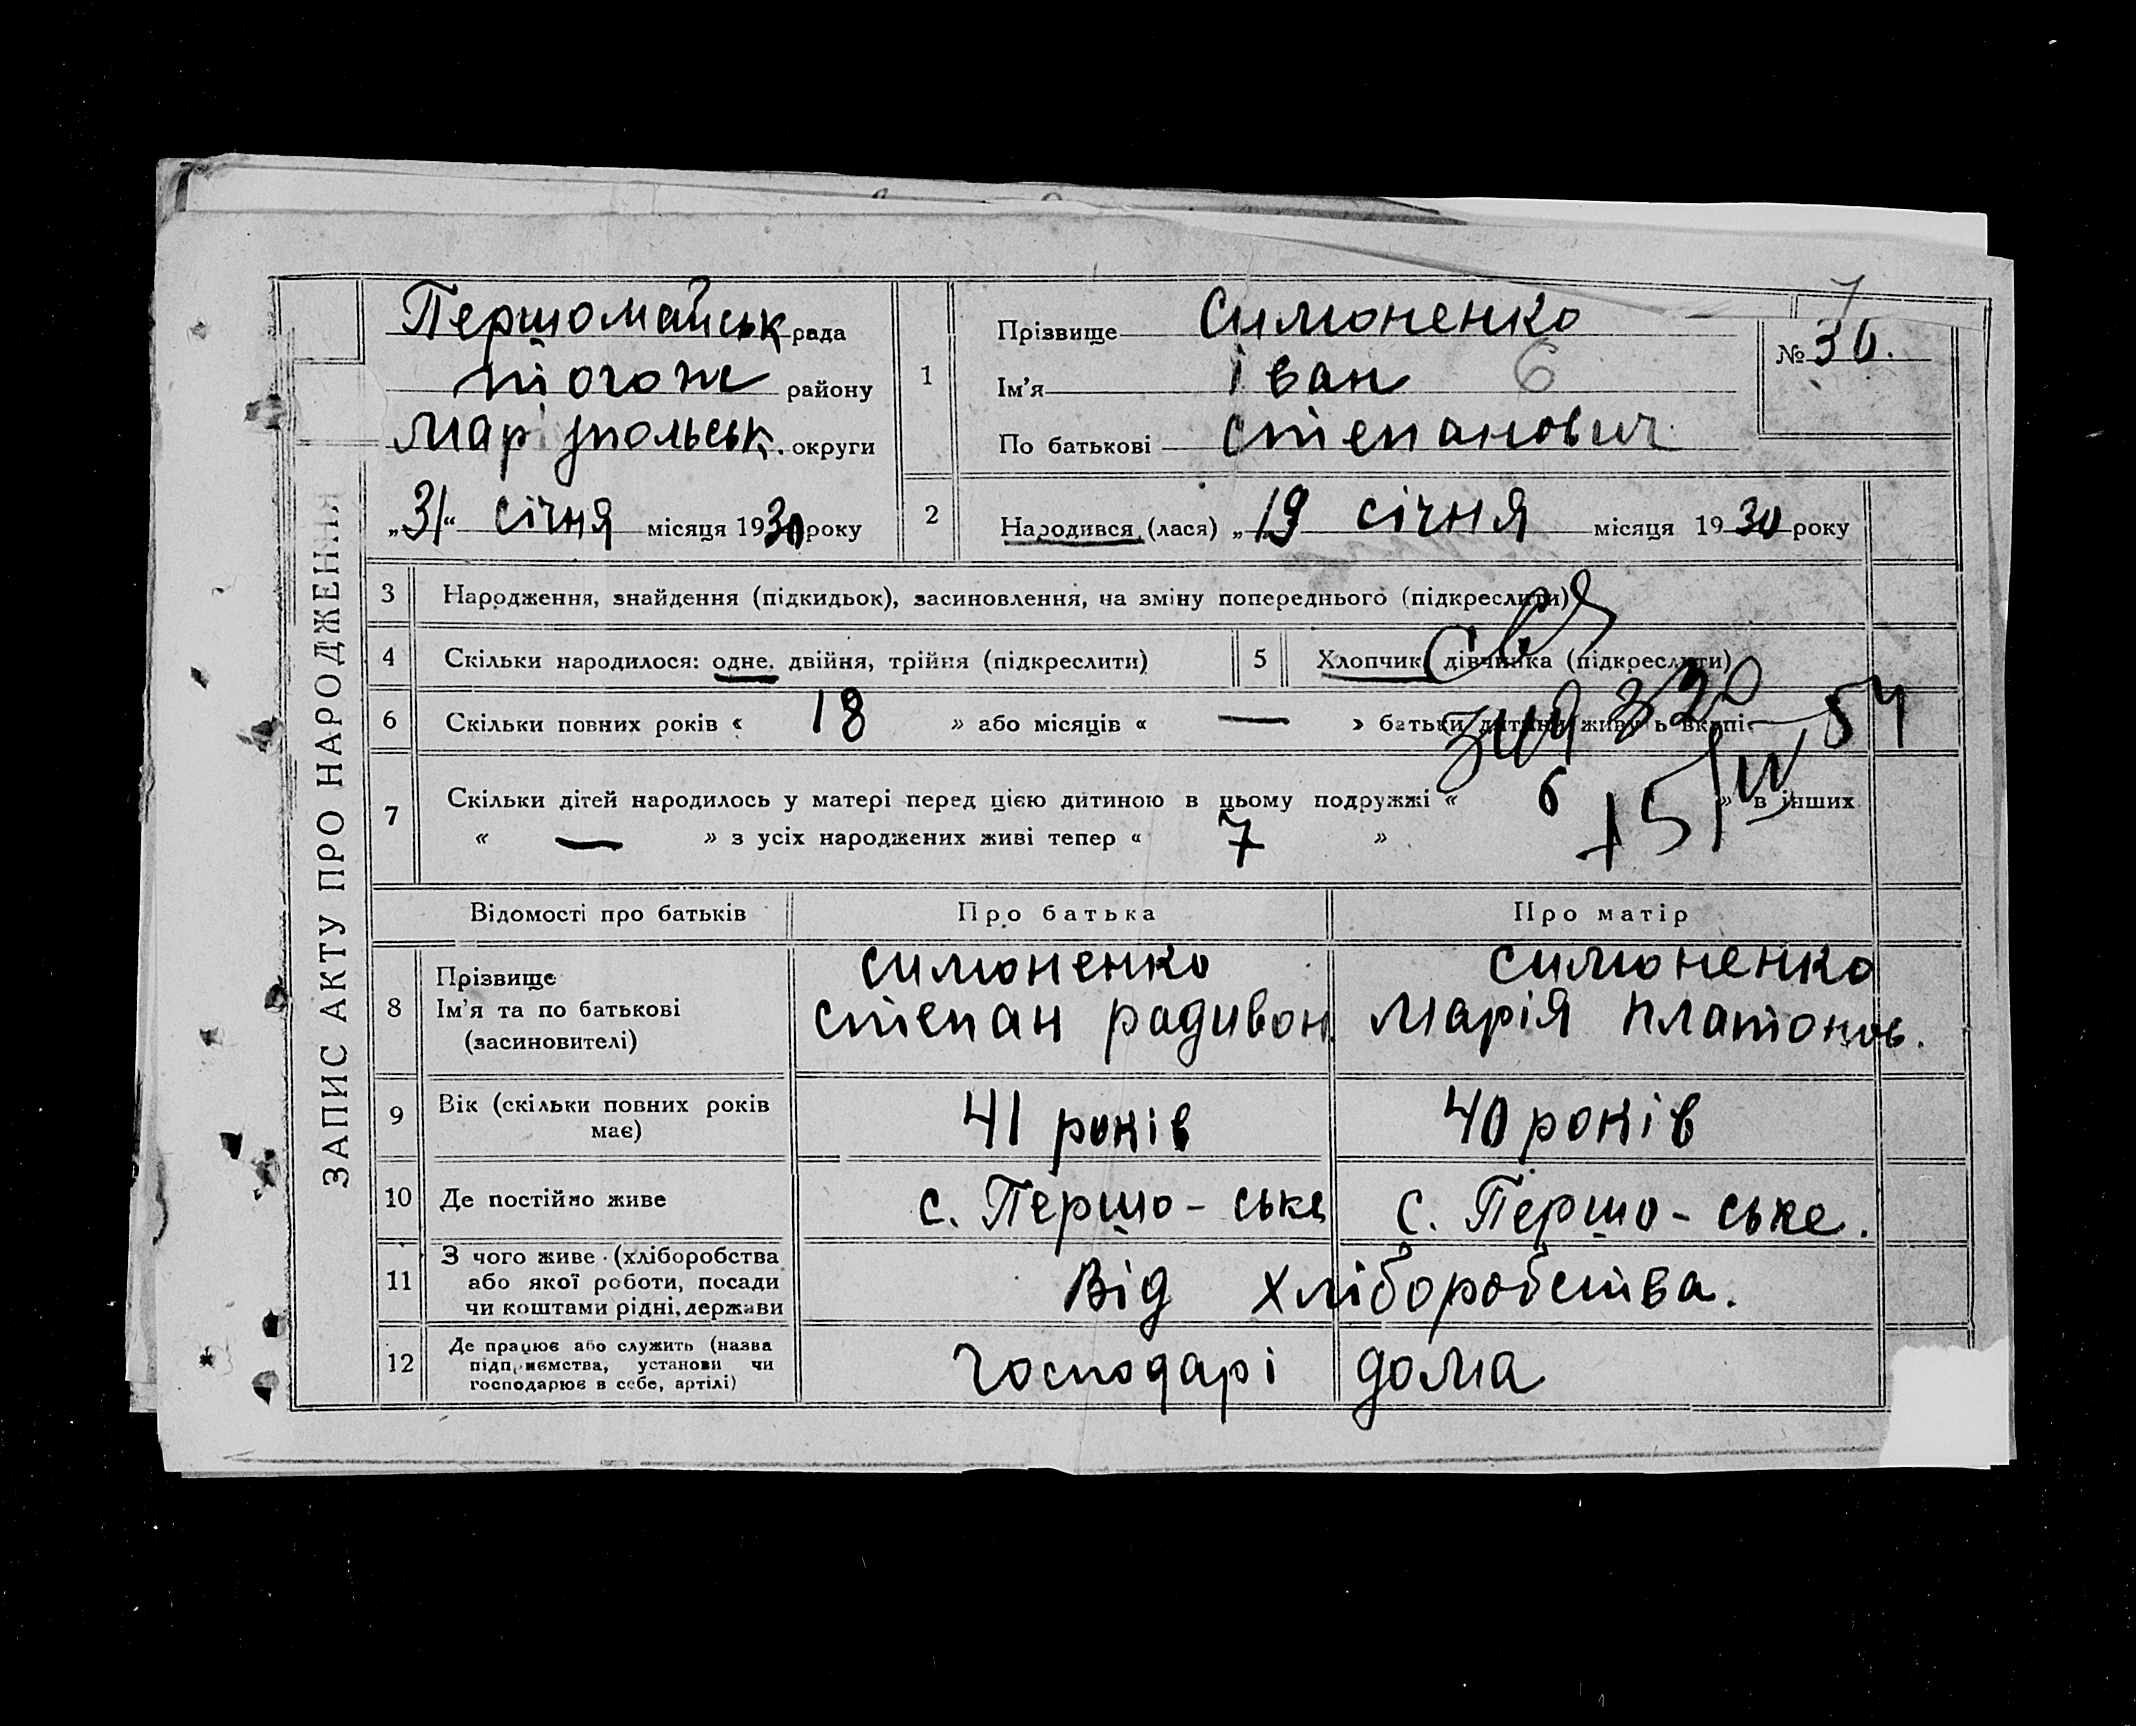 ЗАПИС АКТУ ПРО НАРОДЖЕННЯ
Першомайськ рада
тіогож району
Маріупольськ. округи
„31“ січня місяця 1930 року
1
Прізвище Симоненко
Ім'я Іван 6
По батькові Степанович
№ 30.
2
Народився (лася) „19 січня місяця 1930 року
3 Народження, знайдення (підкидьок), засиновлення, на зміну попереднього (підкреслити)
4 Скільки народилося: одне, двійня, трійня (підкреслити)
5 Хлопчик, дівчинка (підкреслити)
6 Скільки повних років « 18 » або місяців « — » батьки дитини живуть вкупі
7 Скільки дітей народилось у матері перед цією дитиною в цьому подружжі « 6 » в інших
« — » з усіх народжених живі тепер « 7 »
Відомості про батьків Про батька Про матір
8 Прізвище
Ім'я та по батькові
(засиновителі)
Симоненко
Степан Радивон.
Симоненко
Марія Платонов.
9 Вік (скільки повних років
має)
41 років 40 років
10 Де постійно живе с. Першо-ське с. Першо-ське.
11 З чого живе (хліборобства
або якої роботи, посади
чи коштами рідні, держави
Від хліборобства.
12 Де працює або служить (назва
підприємства, установи чи
господарює в себе, артілі)
Господарі дома